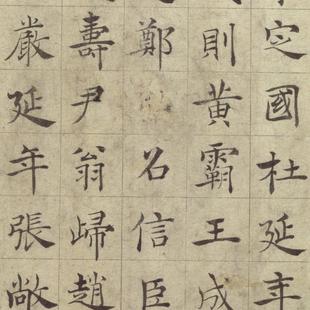 定國杜延年
則黃霸王成
鄭召信臣
壽尹翁歸趙
嚴延年張敞